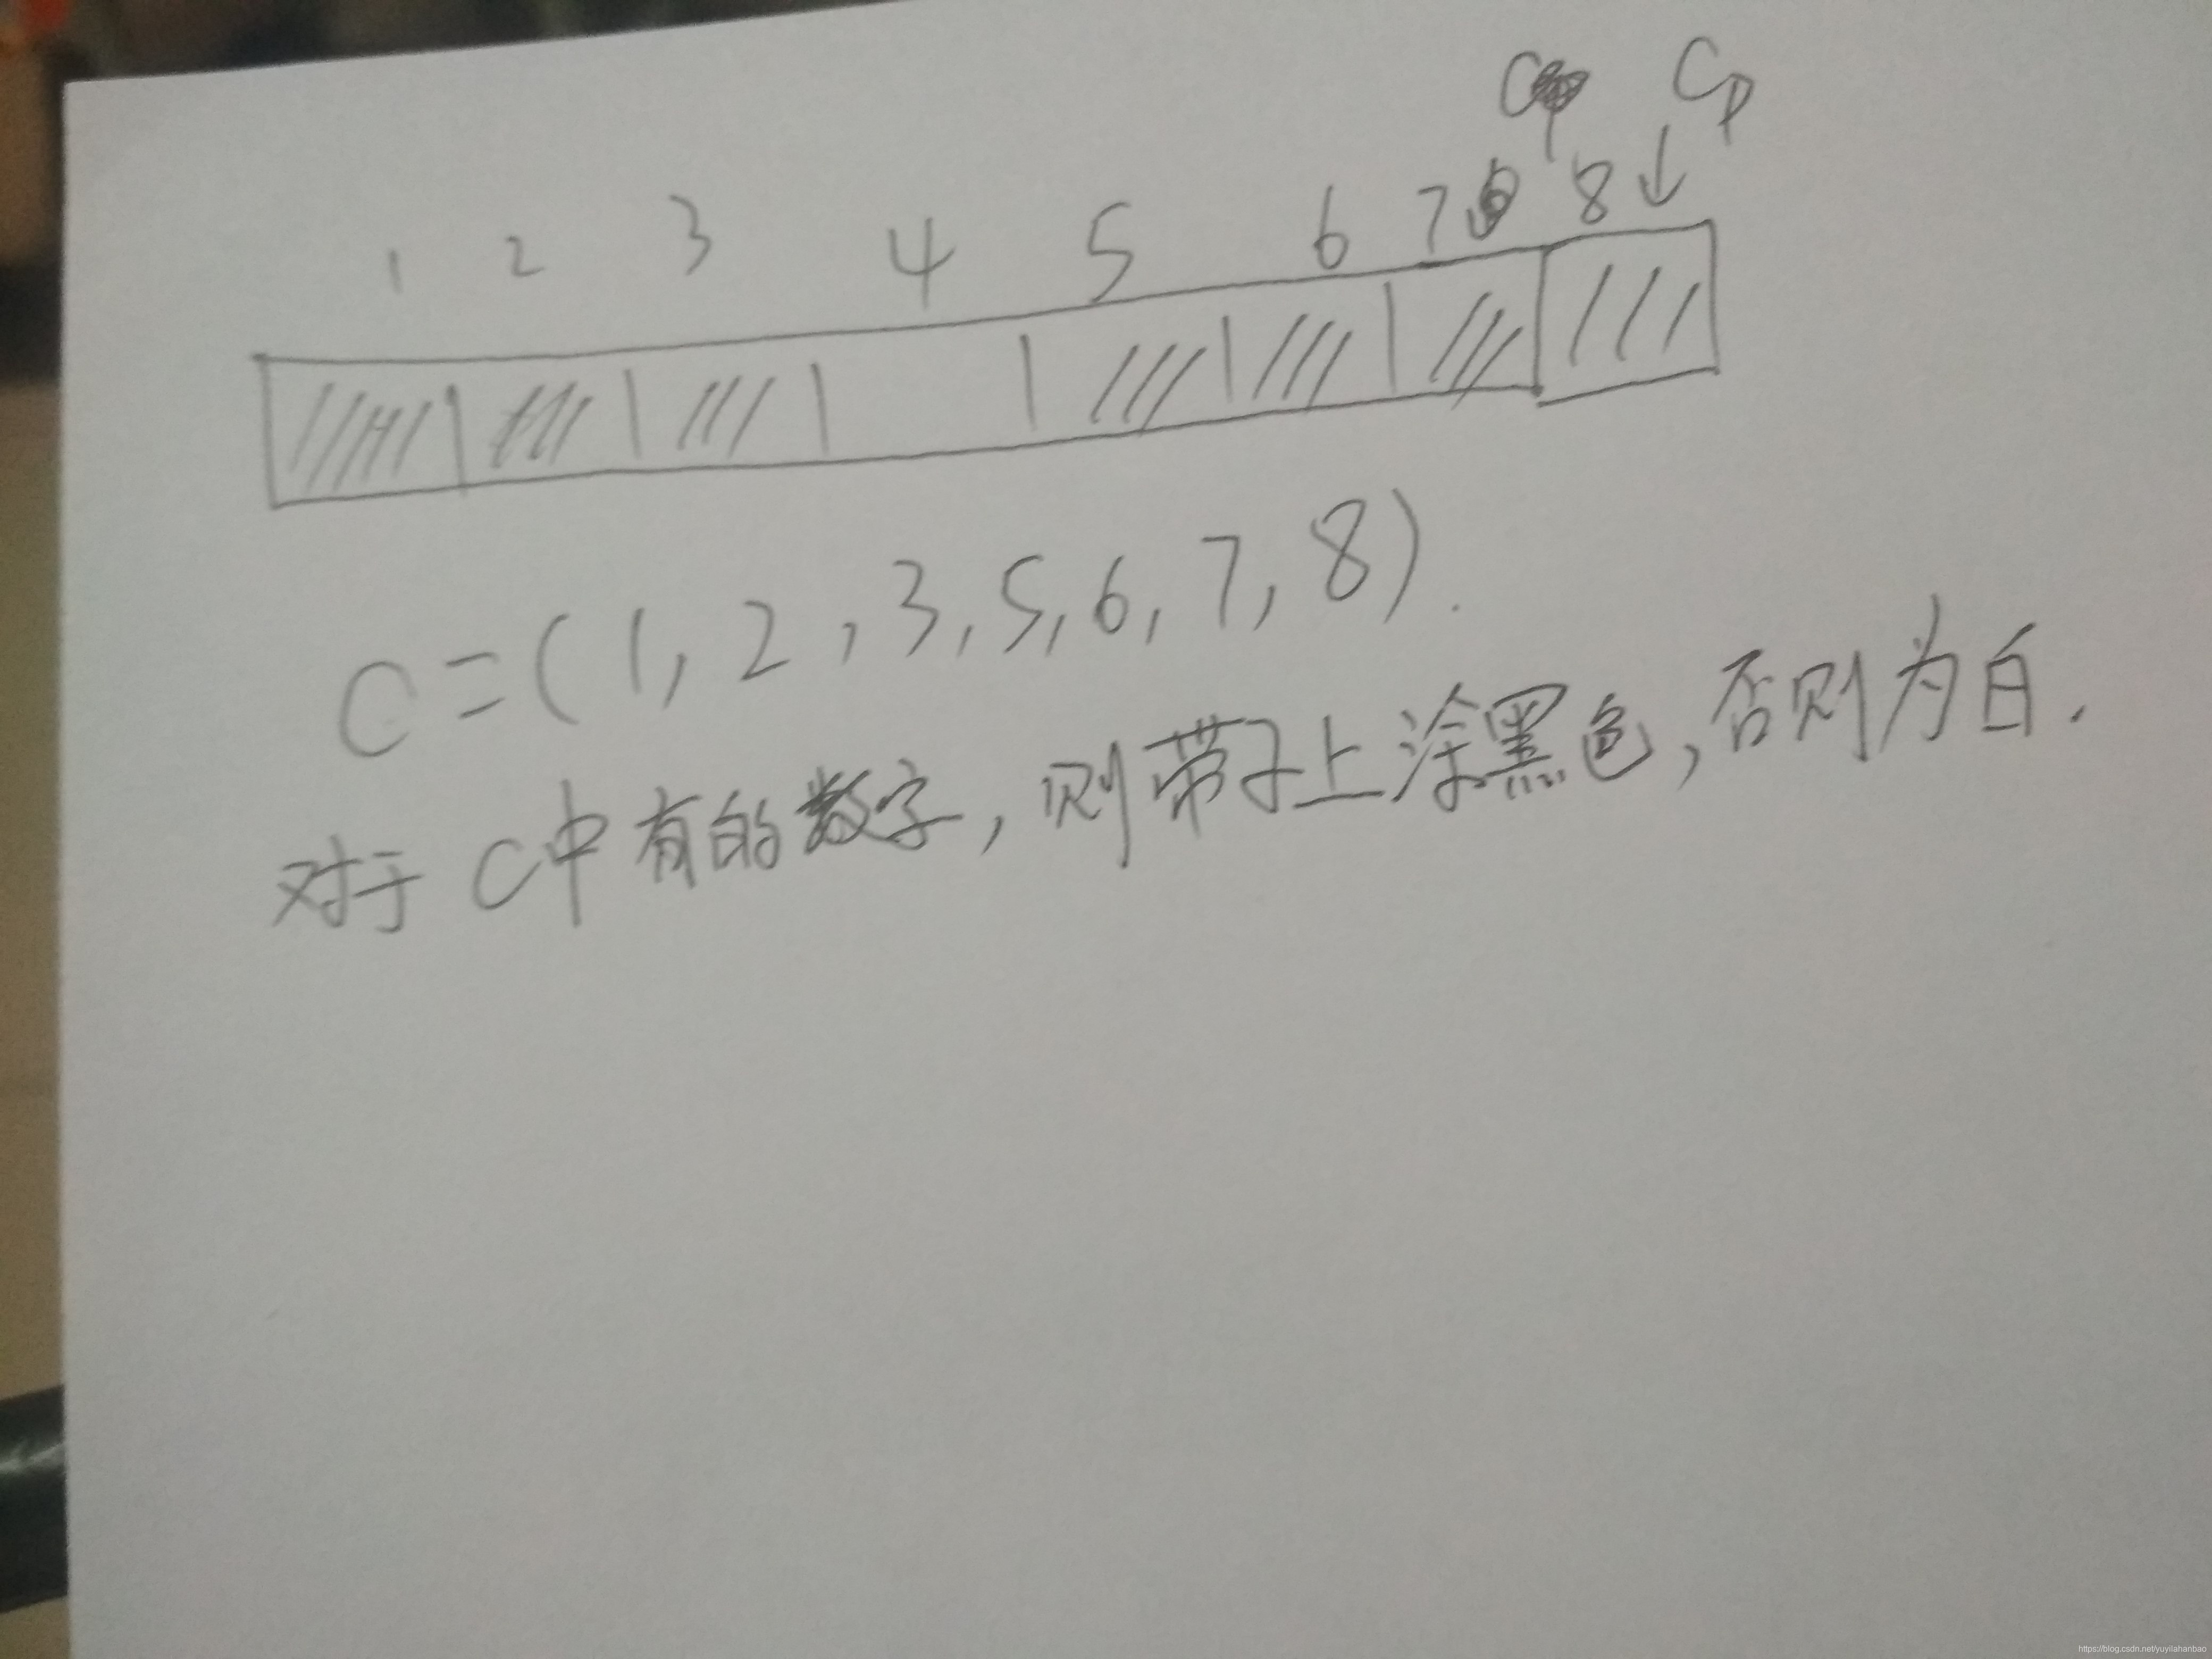 C Cp
1 2 3 4 5 6 7 8
C=(1,2,3,5,6,7,8).
对于C中有的数字,则带子上涂黑色,否则为白.
https://blog.csdn.net/yuyilahanbao